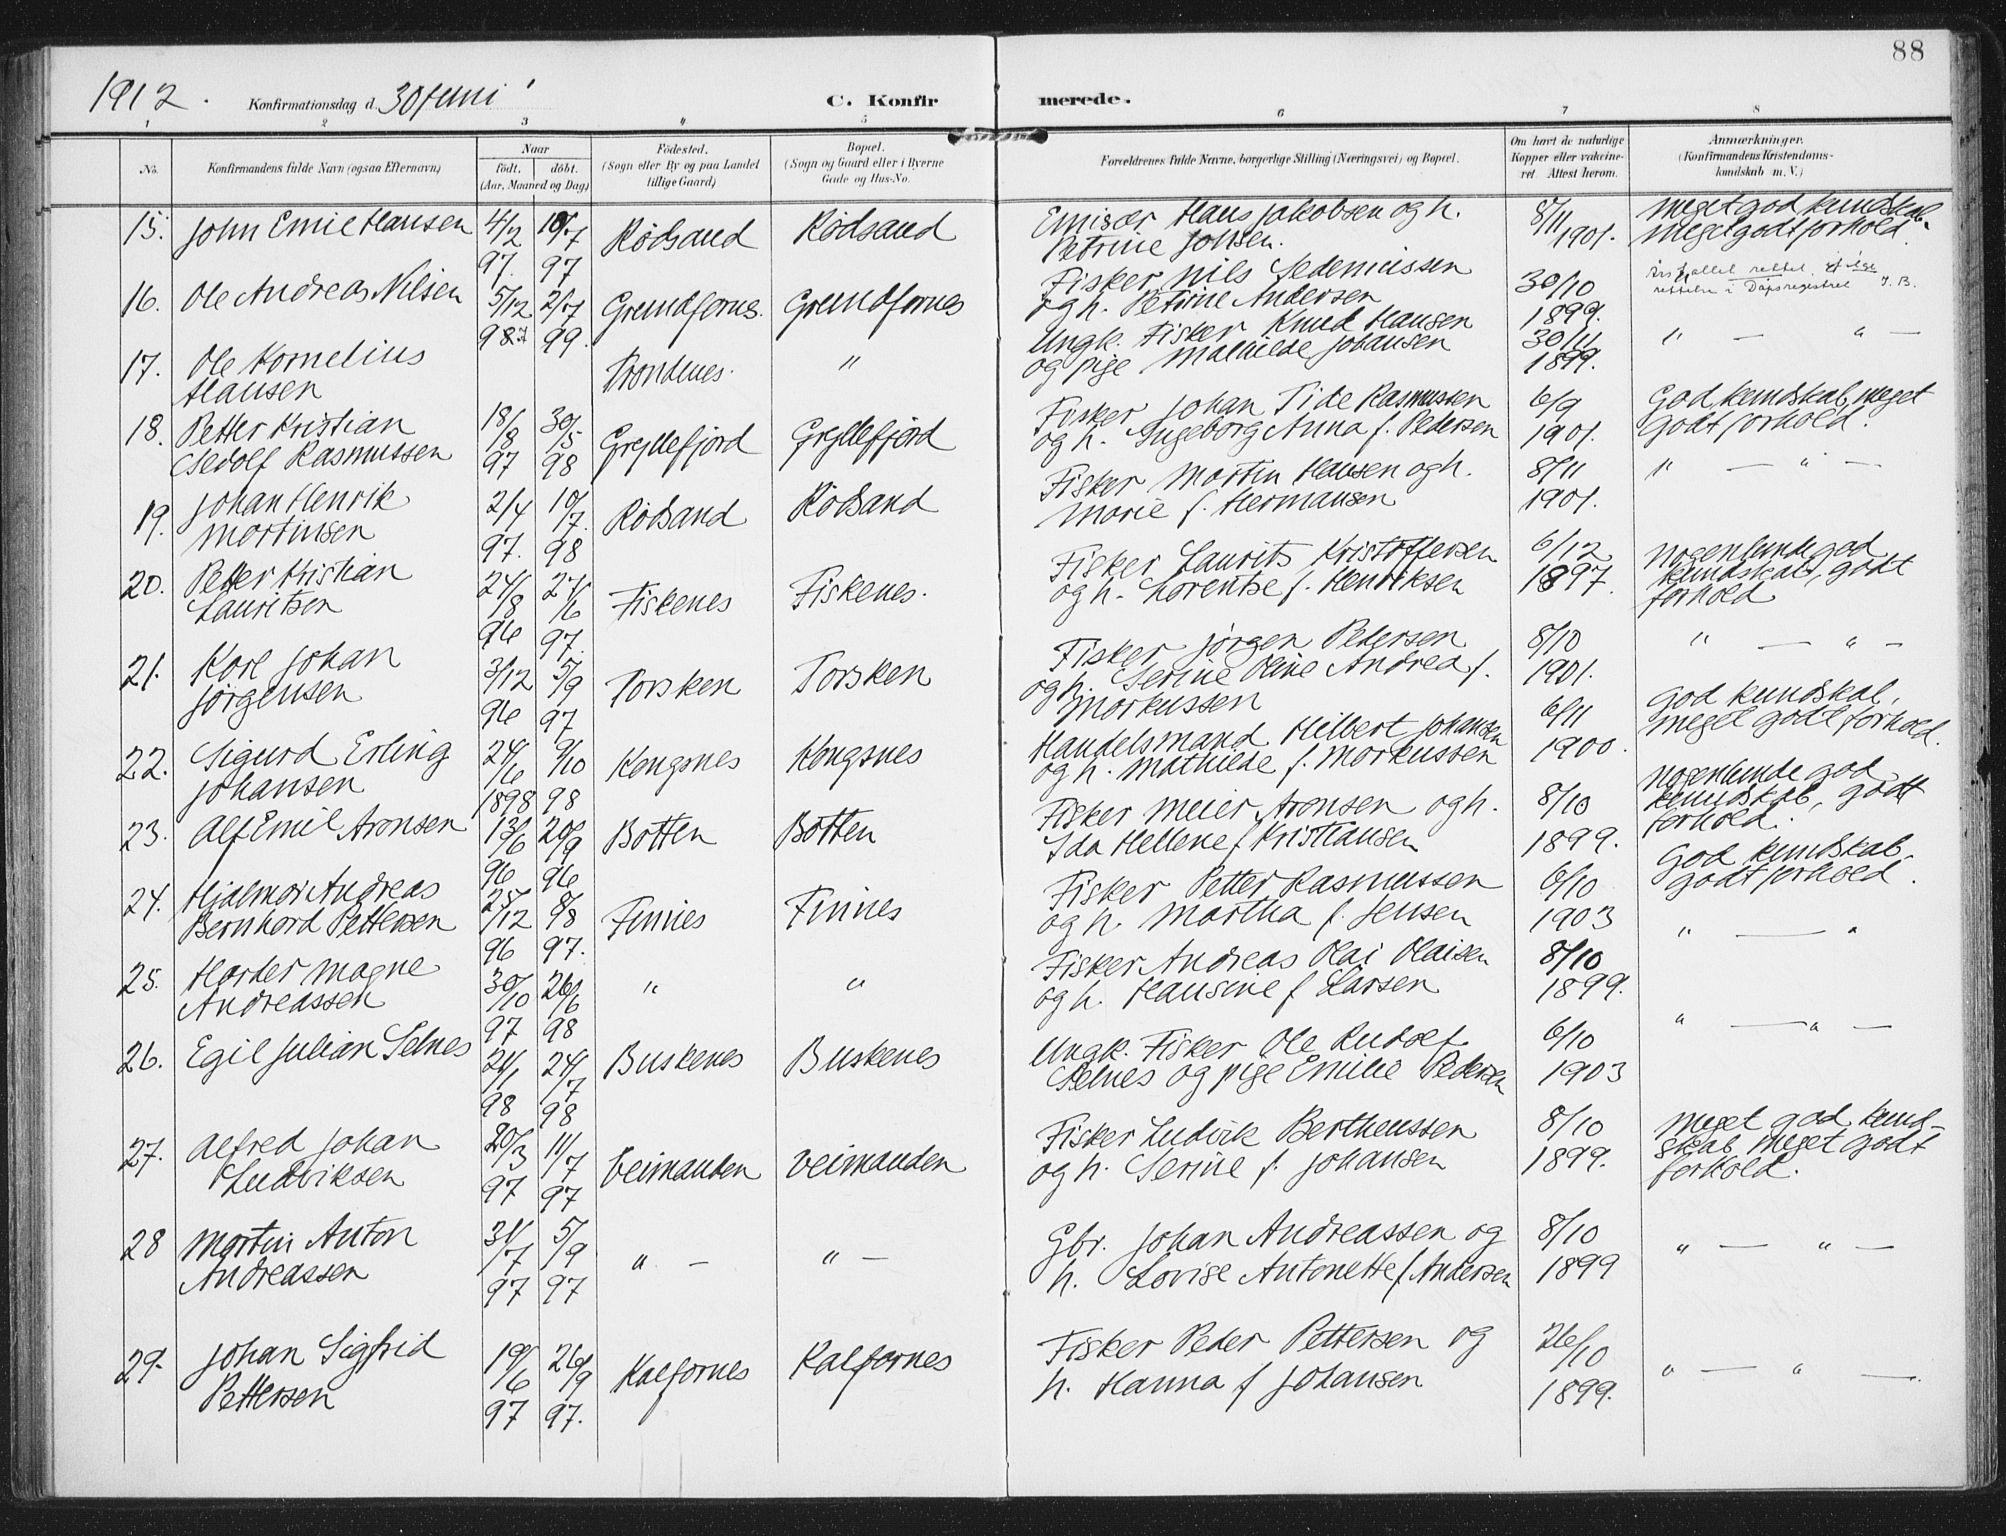 88
1912. Konfirmationsdag d. 30 juni
C. Konfirmerede.
1 2 3 4 5 6 7 8
No.
Konfirmandens fulde Navn (ogsaa Efternavn)
Naar
født. døbt.
(Aar, Maaned og Dag)
Fødested.
(Sogn eller By og paa Landet
tillige Gaard)
Bopæl.
(Sogn og Gaard eller i Byerne
Gade og Hus-No.
Forældrenes fulde Navne, borgerlige Stilling (Næringsvei) og Bopæl.
Om havt de naturlige
Kopper eller vakcine-
ret. Attest herom.
Anmærkninger.
(Konfirmandens Kristendoms-
kundskab m. V.)
15. John Emil Hansen 4/2 97. 10/7 97 Rødsand Rødsand
Emisær Hans Jakobsen og h.
Petrine Johsen.
8/11 1901.
Meget god kundskab.
Meget godt forhold.
16. Ole Andreas Nilsen 5/12 98 2/7 99. Grundfornes. Grundfornes
Fisker Nils Sedeniussen
og h. Petrine Andersen
30/10 1899.
rettelse i Dåpsregistret J.B.
17. Ole Kornelius
Hansen
Trondenes. "
Ungk. Fisker Knud Hansen
og pige Mathilde Johansen
30/11 1899.
" — " —
18. Petter Kristian
Aedolf Rasmussen
18/8 97 30/5 98 Gryllefjord Gryllefjord
Fisker Johan Tide Rasmussen
og h. Ingeborg Anna f. Pedersen
6/9 1901.
God kundskab, meget
godt forhold.
19. Johan Henrik
Martinsen
2/4 97. 10/7. 98 Rødsand Rødsand
Fisker Martin Hansen og h.
Marie f. Hermansen
8/11 1901.
" — " —
20. Petter Kristian
Lauritsen
24/8 96 27/6 97. Fiskenes Fiskenes.
Fisker Laurits Kristoffersen
og h. Lorentse f. Henriksen
6/12 1897.
Nogenlunde god
kundskab, godt
forhold
21. Karl Johan
Jørgensen
3/12 96 5/9 97 Torsken Torsken
Fisker Jørgen Pedersen
og h. Serine Oline Andrea f.
Markussen
8/10 1901.
" — " —
22. Sigurd Erling
Johansen
24/6 1898 9/10 98 Kongsnes Kongsnes
Handelsmand Hilbert Johansen
og h. Mathilde f. Markussen
6/11 1900.
God kundskab.
Meget godt forhold.
23. Alf Emil Aronsen 13/6 96 20/9 96 Botten Botten
Fisker Meier Aronsen og h.
Ida Hellene f Kristiansen
8/10 1899.
Nogenlunde god
kundskab, godt
forhold.
24. Hjalmar Andreas
Bernhard Pettersen
25/12 96 8/8 97. Finnes Finnes
Fisker Petter Rasmussen
og h. Martha f. Jensen
6/10 1903
God kundskab.
godt forhold.
25. Harder Magne
Andreassen
30/10 97 26/6 98 " "
Fisker Andreas Olai Olaisen
og h. Hansine f Larsen
8/10 1899.
" — "
26. Egil Julian Selnes 21/1 98 24/7 98 Buskenes Buskenes
Ungk. Fisker Ole Rudolf
Selnes og pige Emilie Pedersen
6/10 1903
" — " —
27. Alfred Johan
Ludviksen
20/3 97 11/7 97 Veimanden Veimanden
Fisker Ludvik Bertheussen
og h. Serine f. Johansen
8/10 1899.
Meget god kund-
skab, meget godt
forhold.
28 Martin Anton
Andreassen
31/7 97 5/9 97 " — " —
Gbr. Johan Andreassen og
h. Lovise Antonette f. Andersen
8/10 1899
" — " —
29. Johan Sigfrid
Pettersen
19/6 97 26/9 97. Kalfornes Kalfornes
Fisker Peder Pettersen og
h. Hanna f Johansen
26/10 1899.
" — " —